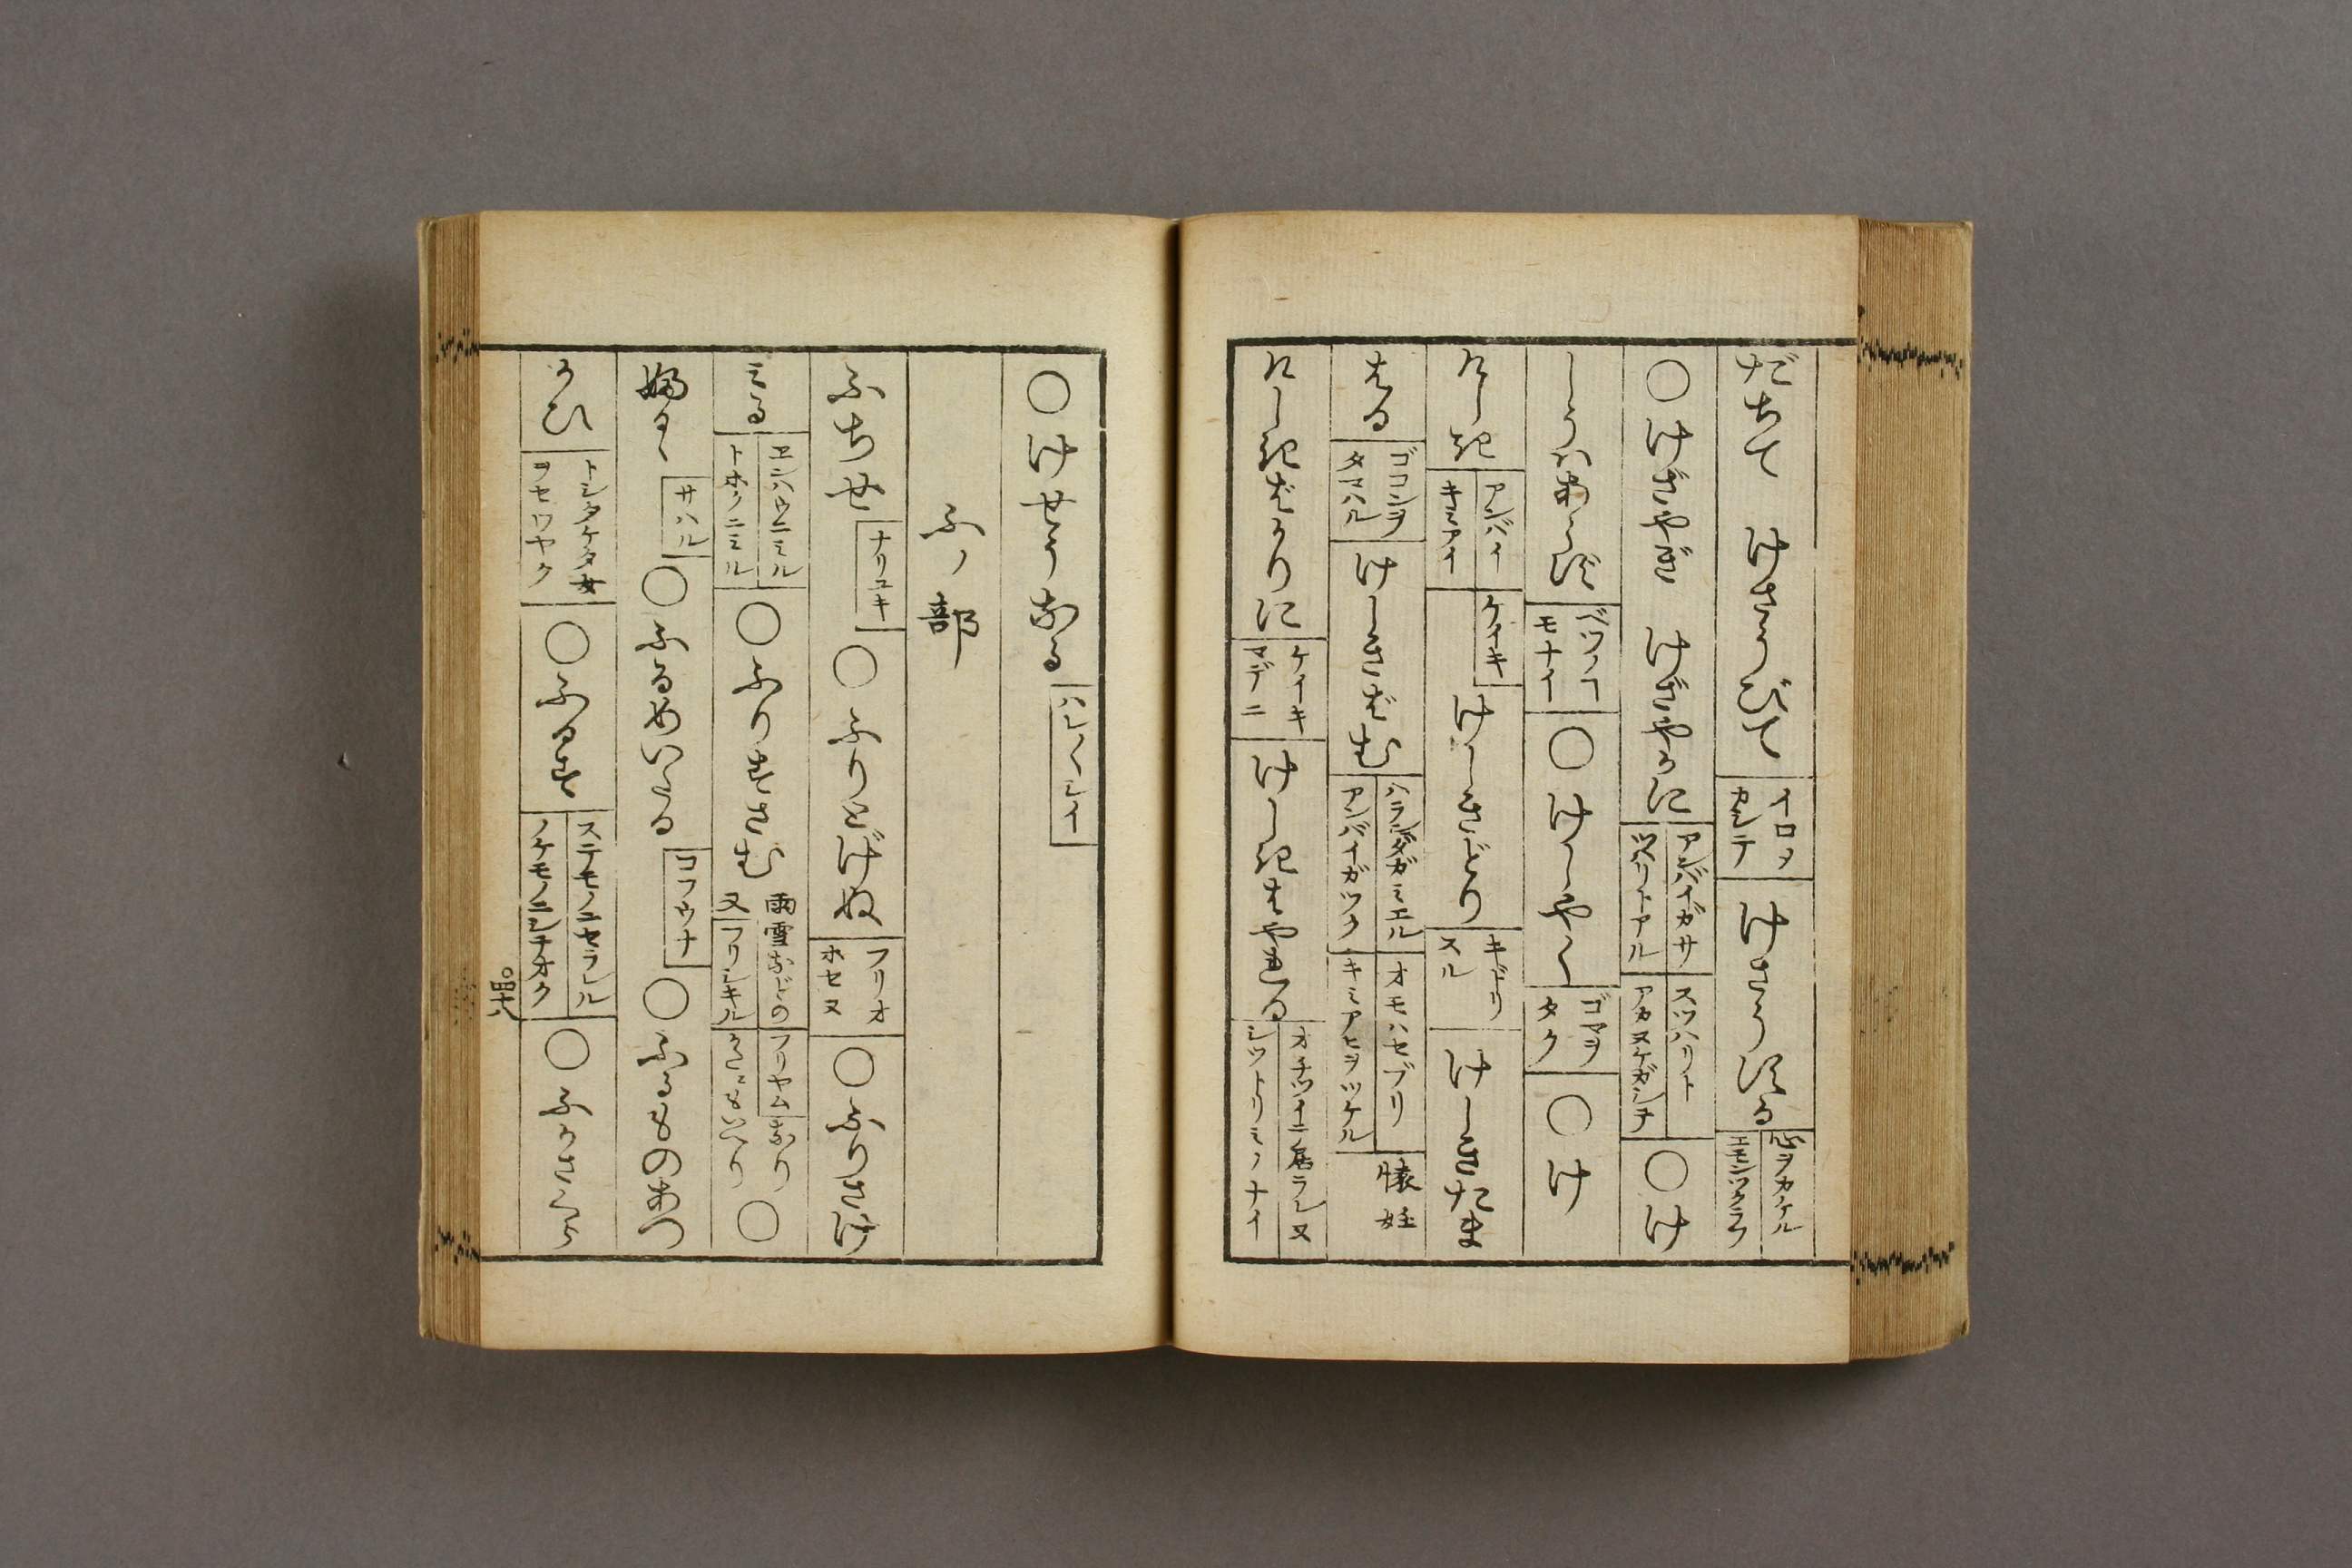 だちて けさうびて イロメカシテ けさうにる 心ヲカケル エモンツクラフ
○けざやぎ けざやかに アンバイガサツパリトアル スツハリト アカヌケガシテ ○け
しうはあらず ベツノコモナイ ○けしやく ゴマヲタク ○け
れしき アンバイ キミアイ ケイキ けしきどり キドリスル けしきたま
はる ゴコンヲタマハル けしきだむ ハランダガミエル アンバイガツク オモハセブリ キミアヒヲツケル 懐妊
れしきだかりに ケイキマデニ けしきをやれる
○けせうなる ハレ〳〵シイ
ふノ部
ふちせ ナリユキ ○ふりとげぬ フリオホセヌ ○ふりさけ
みる エンハウニミル トホクニミル ○ふりすさむ 雨雪などの フリヤム なり 又 フリシキル ○
サハル ○ふるめいたる コフウナ ○ふるものあつ
かひ トシタケタ女ヲセワヤク ○ふるす ステモノニセラル ノケモノニシテオク ○ふかさくら
○四十八